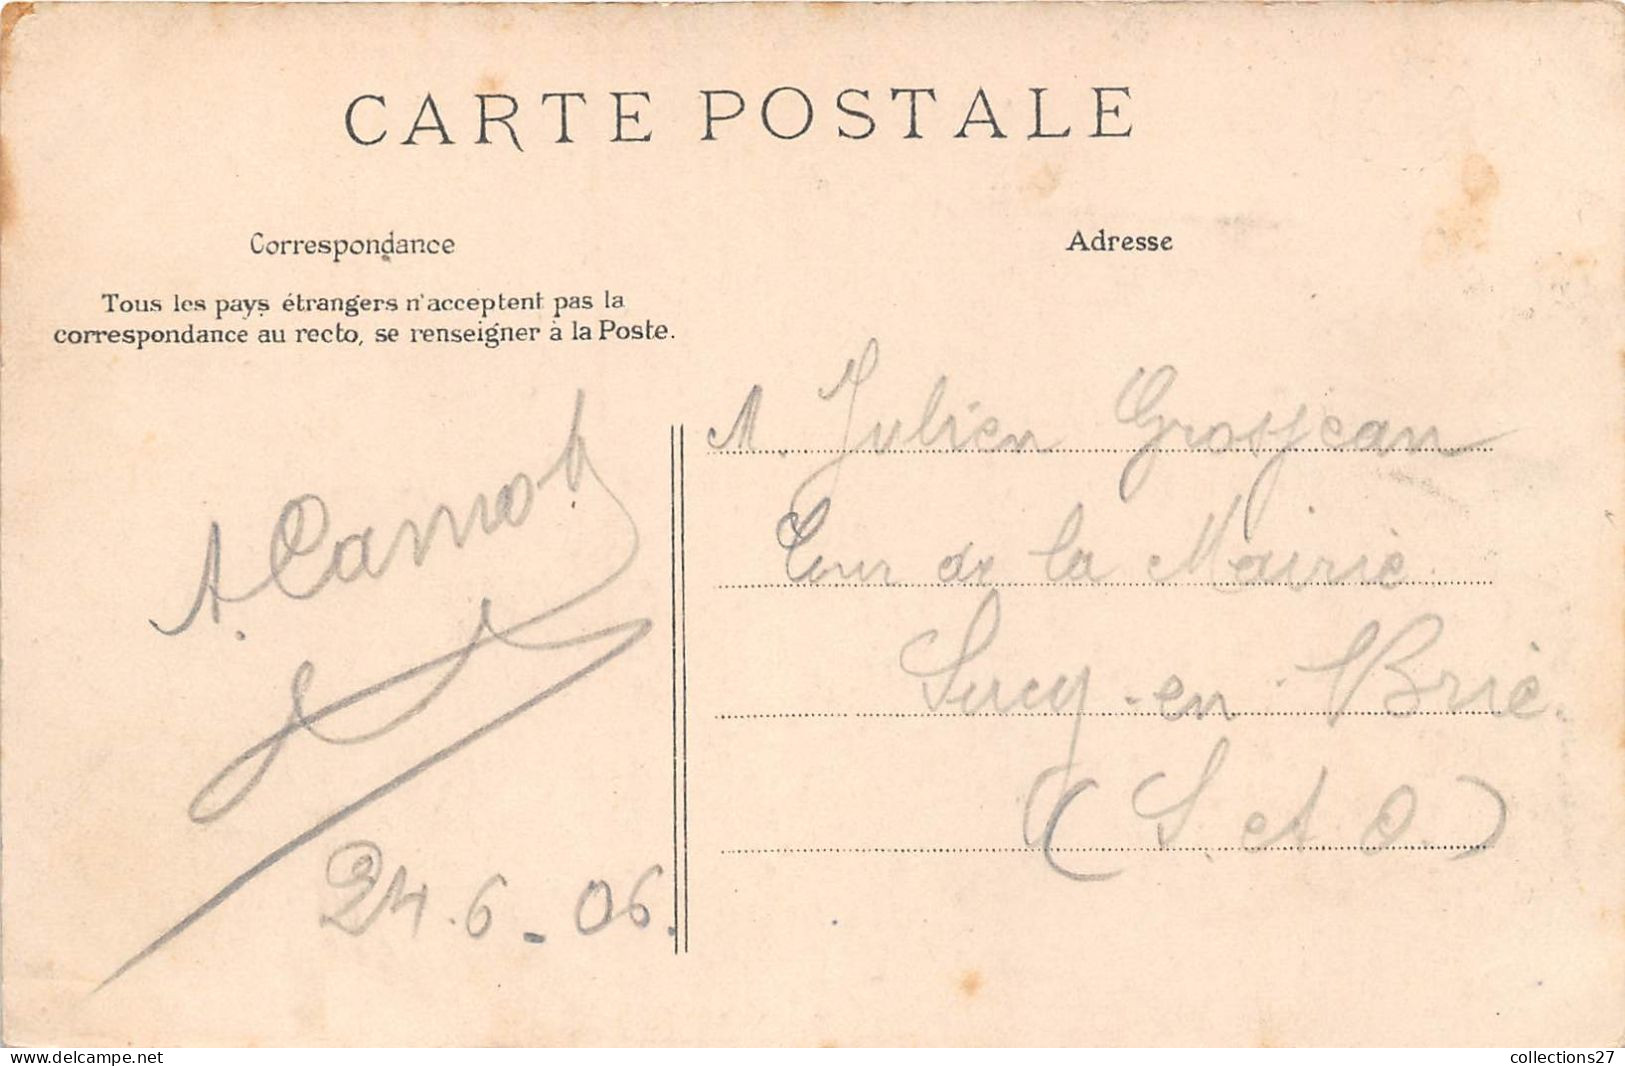 CARTE POSTALE
Correspondance
Tous les pays étrangers n'acceptent pas la
correspondance au recto, se renseigner à la Poste.
A. Carnot
24.6-06.
Adresse
M. Julien Grosjean
Cour de la Mairie
Sucy-en-Brie.
(S. et O.)
www.delcampe.net
collections27